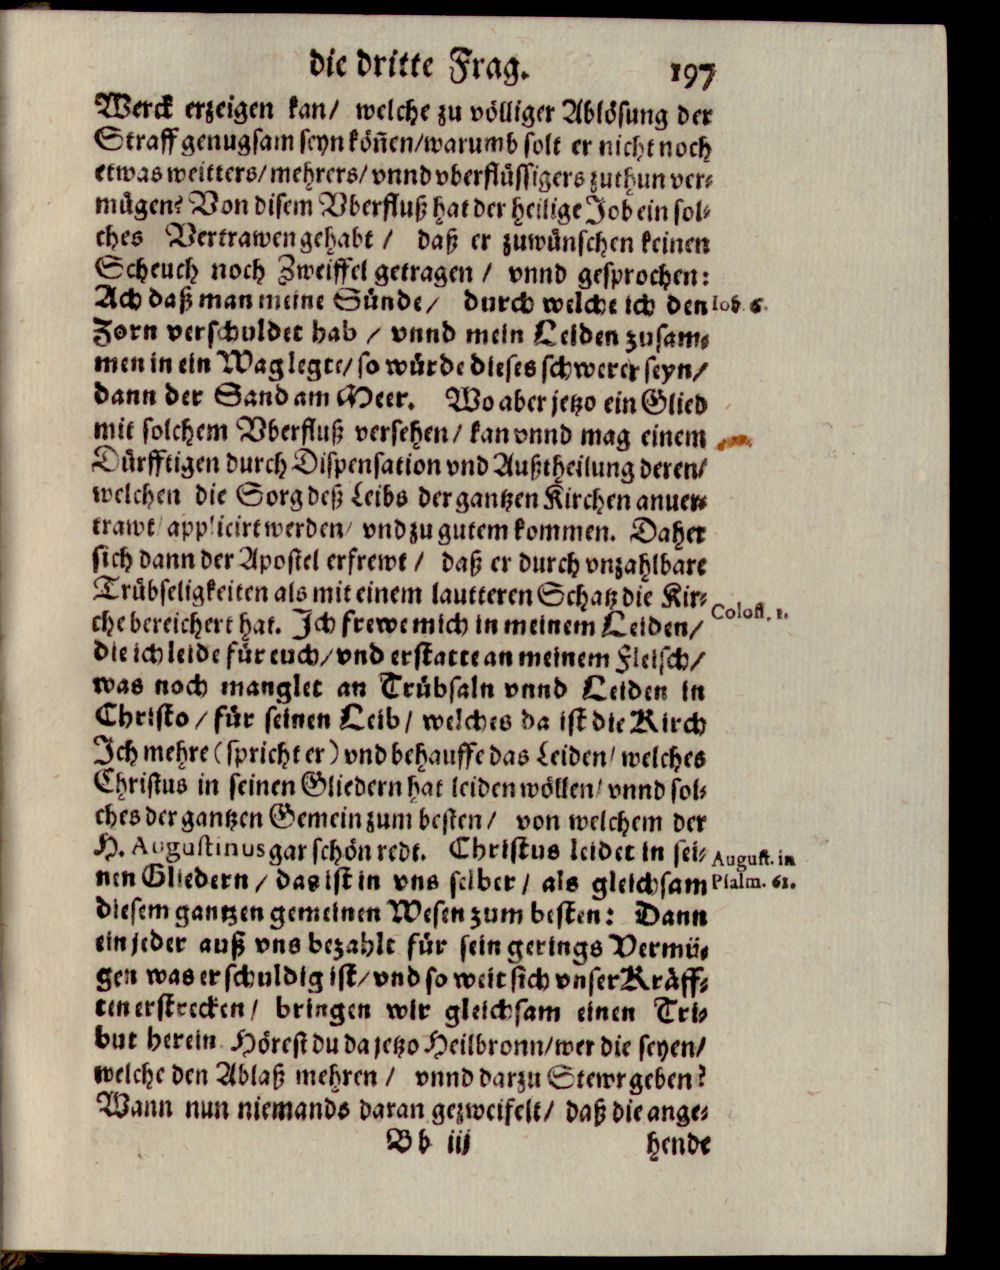 die dritte Frag. 197
Werck erzeigen kan/ welche zu völliger Ablösung der
Straff genugsam seyn köñen/warumb solt er nicht noch
etwas weitters/mehrers/vnnd vberflüssigers zuthun ver-
mügen? Von disem Vberfluß hat der heilige Job ein sol-
ches Vertrawen gehabt / daß er zuwünschen keinen
Scheuch noch Zweiffel getragen / vnnd gesprochen:
Ach daß man meine Sünde/ durch welche ich den Iob. 6.
Zorn verschuldet hab / vnnd mein Leiden zusam-
men in ein Wag legte/so würde dieses schwerer seyn/
dann der Sand am Meer. Wo aber jetzo ein Glied
mit solchem Vberfluß versehen/ kan vnnd mag einem
Dürfftigen durch Dispensation vnd Außtheilung deren/
welchen die Sorg deß Leibs der gantzen Kirchen anuer-
trawt/ applicirt werden/ vnd zu gutem kommen. Daher
sich dann der Apostel erfrewt / daß er durch vnzahlbare
Trübseligkeiten als mit einem lautteren Schatz die Kir-
che bereichert hat. Ich frewe mich in meinem Leiden/ Coloss. 1.
die ich leide für euch/vnd erstatte an meinem Fleisch/
was noch manglet an Trübsaln vnnd Leiden in
Christo / für seinen Leib/ welches da ist die Kirch
Ich mehre (spricht er) vnd behauffe das Leiden/ welches
Christus in seinen Gliedern hat leiden wöllen/ vnnd sol-
ches der gantzen Gemein zum besten/ von welchem der
H. Augustinus gar schön redt. Christus leidet in sei- August. in
nen Gliedern / das ist in vns selber / als gleichsam Psalm. 61.
diesem gantzen gemeinen Wesen zum besten: Dann
ein jeder auß vns bezahlt für sein gerings Vermü-
gen was er schuldig ist/vnd so weit sich vnser Kräff-
ten erstrecken/ bringen wir gleichsam einen Tri-
but herein. Hörest du da jetzo Heilbronn/wer die seyen/
welche den Ablaß mehren / vnnd darzu Stewr geben?
Wann nun niemands daran gezweifelt/ daß die ange-
Bb iij hende